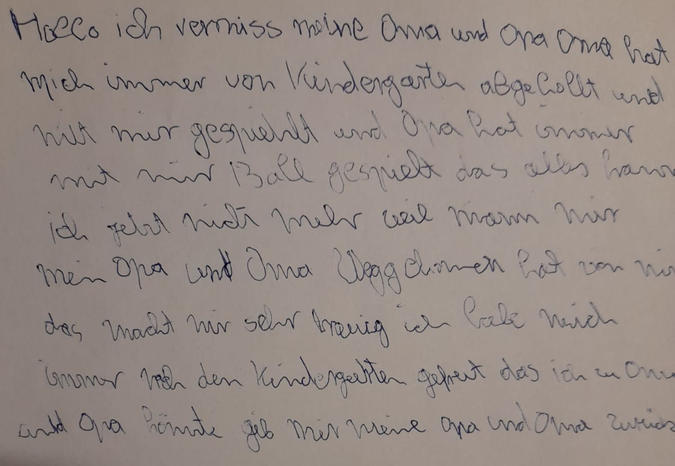 Hallo ich vermiss meine Oma und Opa Oma hat
mich immer von Kindergarten abgehollt und
mit mir gespiehlt und Opa hat immer
mit mir Ball gespielt das alles kann
ich jetzt nicht mehr weil mann mir
mein Opa und Oma Weggenommen hat von mir
das macht mir sehr traurig ich habe mich
immer nach den Kindergarten gefreut das ich zu Oma
und Opa könnte gib mir meine Opa und Oma zurück